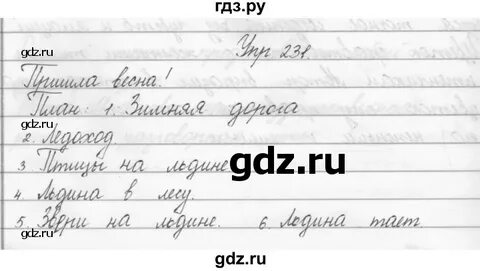 гдз.ру
Упр 231.
Пришла весна!
План: 1. Зимняя дорога
2. Ледоход.
3 Птицы на льдине
4. Льдина в лесу.
5. Звери на льдине. 6. Льдина тает.
gdz.ru
gdz.ru
gdz.ru
gdz.ru
gdz.ru
gdz.ru
gdz.ru
gdz.ru